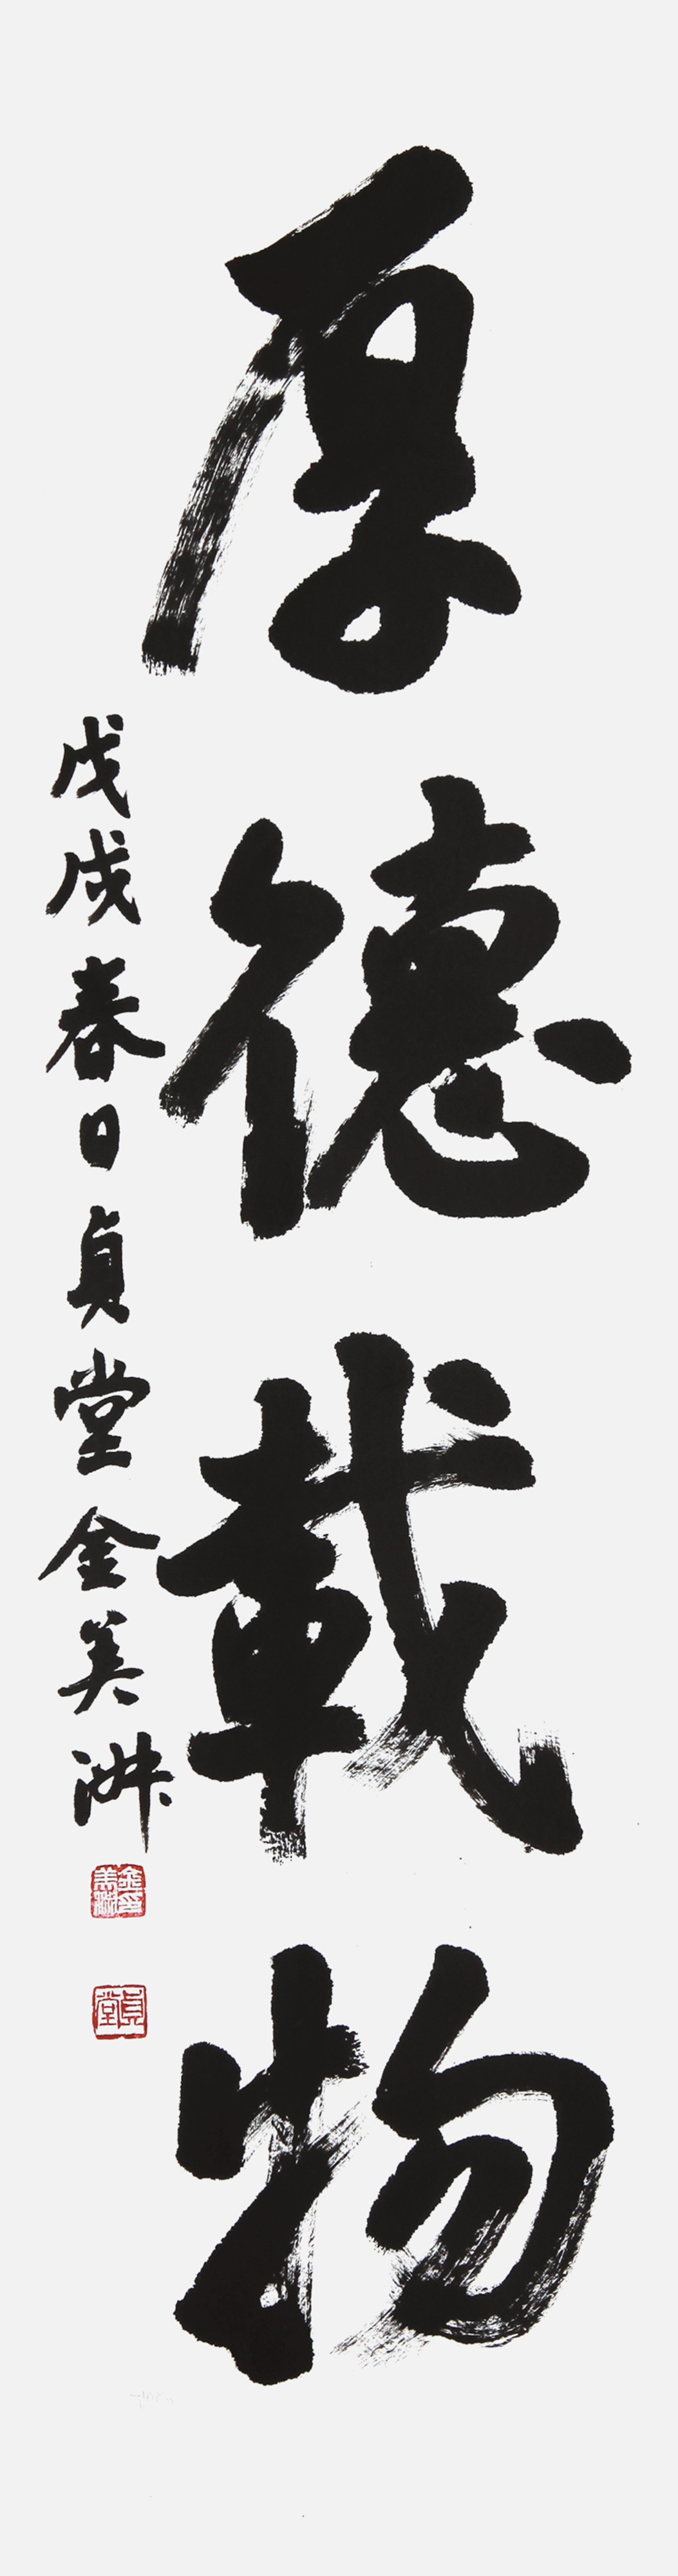 厚德載物
戊戌春日貞堂金美淋
金美淋印
貞堂